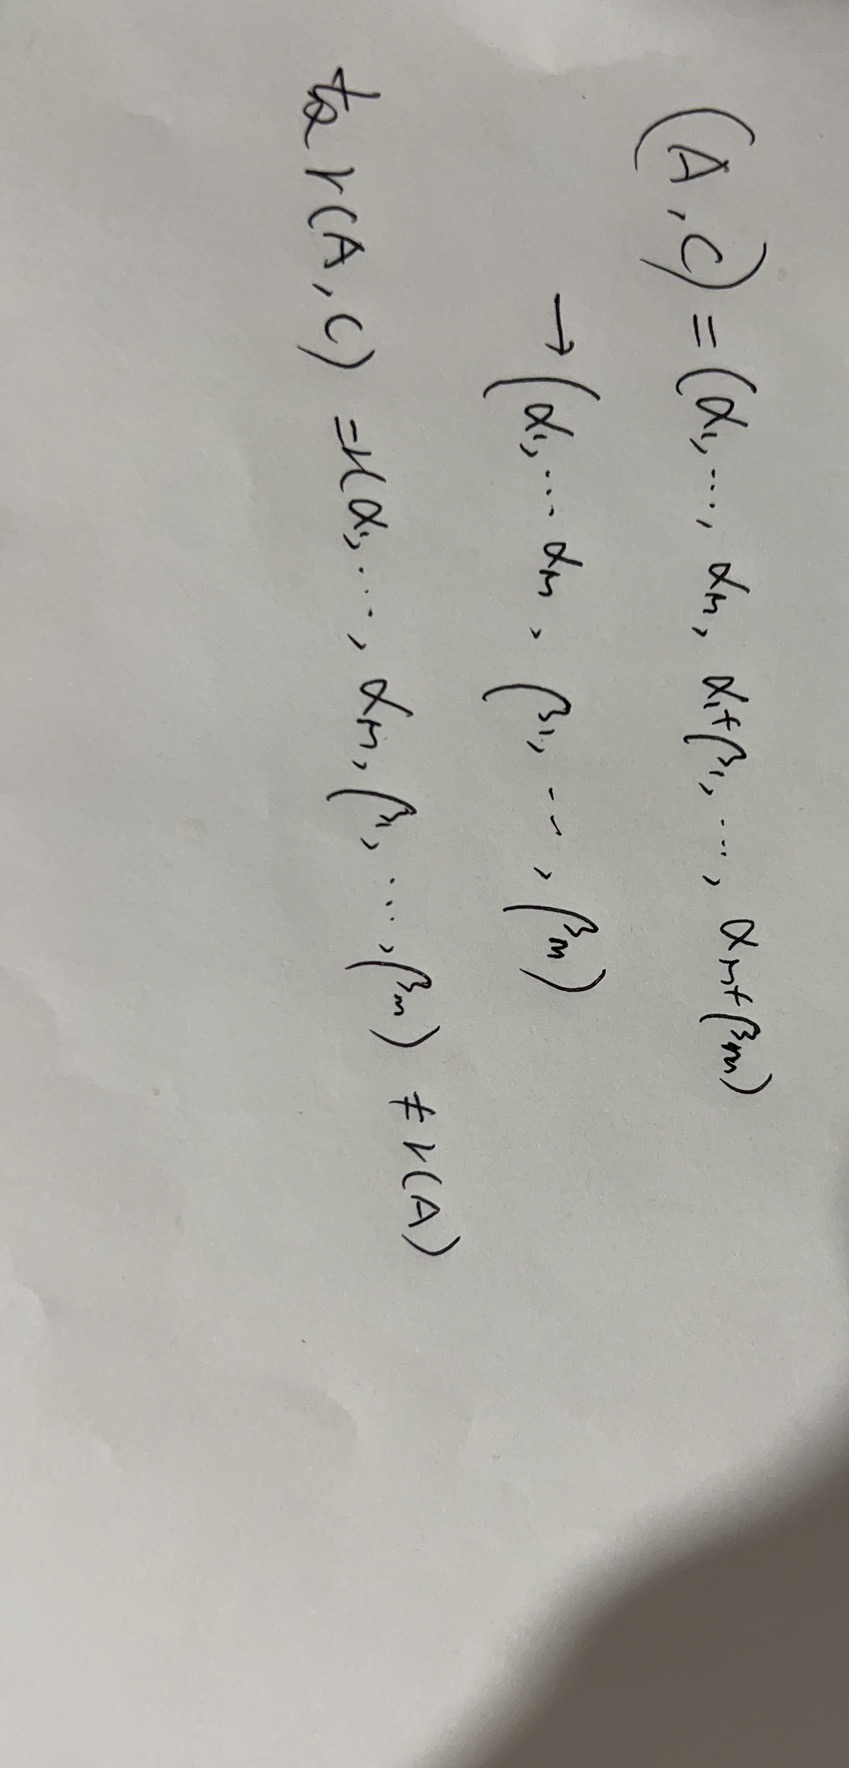 (A, C) = (α₁, ..., αₘ, α₁+β₁, ..., αₘ+βₘ)
→ (α₁, ... αₘ, β₁, ..., βₘ)
故 r(A, C) = r(α₁, ..., αₘ, β₁, ..., βₘ) ≠ r(A)